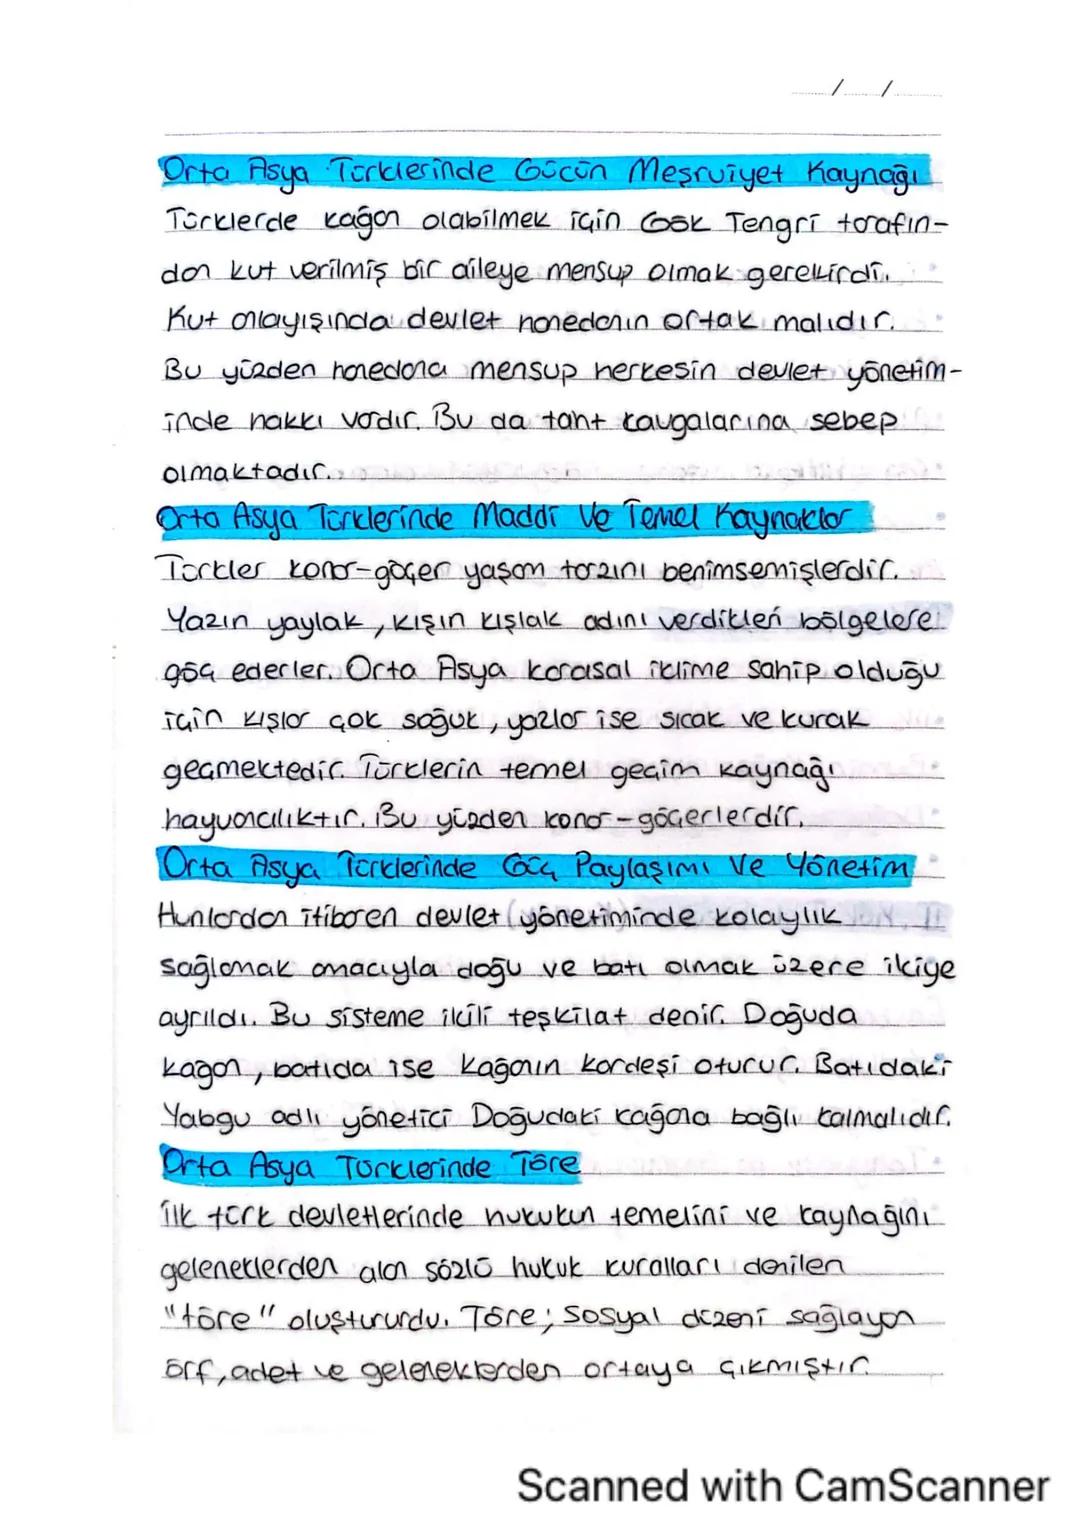 / /
Orta Asya Türklerinde Gücün Meşruiyet Kaynağı
Türklerde kağan olabilmek için Gök Tengri tarafın-
dan kut verilmiş bir aileye mensup olmak gerekirdi.
Kut anlayışında devlet hanedanın ortak malıdır.
Bu yüzden hanedana mensup herkesin devlet yönetim-
inde hakkı vardır. Bu da taht kavgalarına sebep
olmaktadır.
Orta Asya Türklerinde Maddi Ve Temel Kaynaklar
Türkler konar-göçer yaşam tarzını benimsemişlerdir.
Yazın yaylak, kışın kışlak adını verdikleri bölgelere
göç ederler. Orta Asya karasal iklime sahip olduğu
için kışlar çok soğuk, yazlar ise sıcak ve kurak
geçmektedir. Türklerin temel geçim kaynağı
hayvancılıktır. Bu yüzden konar-göçerlerdir.
Orta Asya Türklerinde Güç Paylaşımı Ve Yönetim
Hunlardan itibaren devlet yönetiminde kolaylık
sağlamak amacıyla doğu ve batı olmak üzere ikiye
ayrıldı. Bu sisteme ikili teşkilat denir. Doğuda
kağan, batıda ise kağanın kardeşi oturur. Batıdaki
Yabgu adlı yönetici Doğudaki kağana bağlı kalmalıdır.
Orta Asya Türklerinde Töre
İlk türk devletlerinde hukukun temelini ve kaynağını
geleneklerden alan sözlü hukuk kuralları denilen
"töre" oluştururdu. Töre; sosyal düzeni sağlayan
örf, adet ve geleneklerden ortaya çıkmıştır.
Scanned with CamScanner